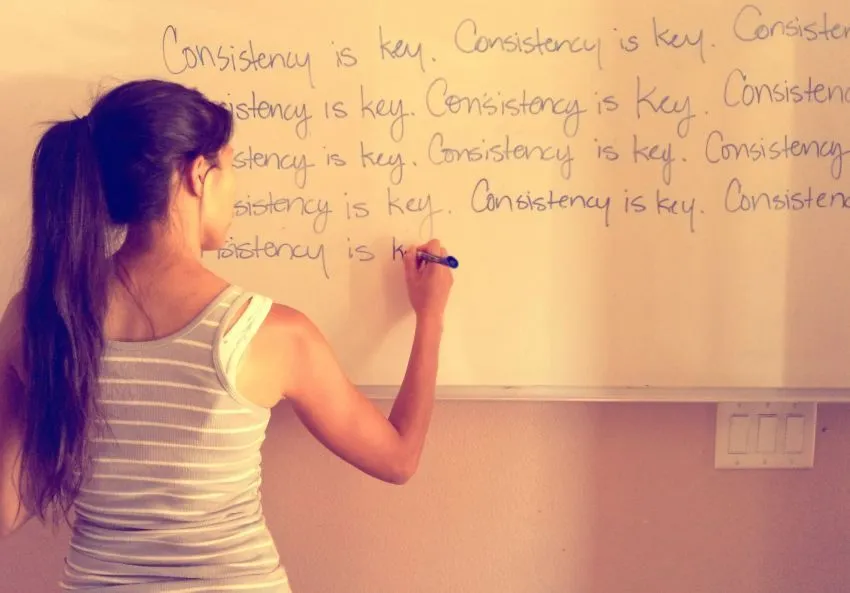 Consistency is key. Consistency is key. Consisten
istency is key. Consistency is Key. Consisten
stency is key. Consistency is key. Consistency
sistency is key. Consistency is key. Consisten
sistency is k